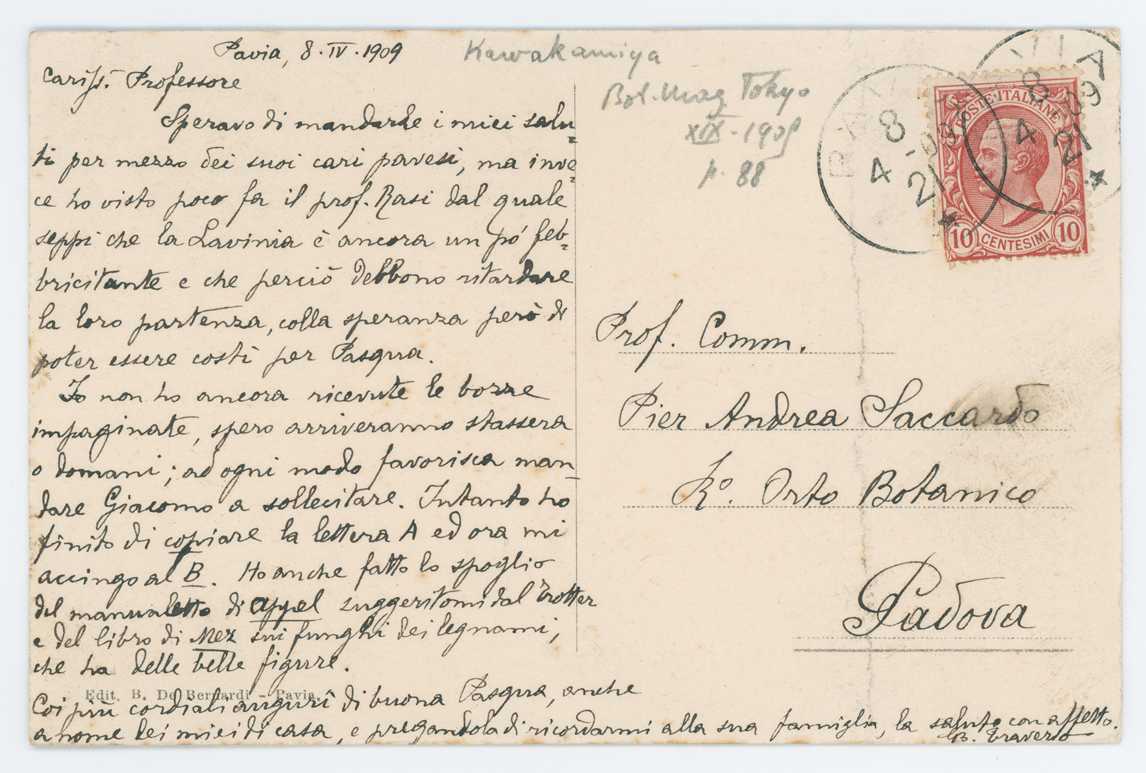 Pavia, 8·IV·1909
Cariss. Professore
Speravo di mandarle i miei salu-
ti per mezzo dei suoi cari pavesi, ma inve-
ce ho visto poco fa il prof. Rasi dal quale
seppi che la Lavinia è ancora un pó feb-
bricitante e che perciò debbono ritardare
la loro partenza, colla speranza però di
poter essere costì per Pasqua.
Io non ho ancora ricevute le bozze
impaginate, spero arriveranno stassera
o domani; ad ogni modo favorisca man-
dare Giacomo a sollecitare. Intanto ho
finito di copiare la lettera A ed ora mi
accingo al B. Ho anche fatto lo spoglio
del manualetto di Appel suggeritomi dal Trotter
e del libro di Mez sui funghi dei legnami,
che ha delle belle figure.
Edit. B. De Bernardi - Pavia.
Coi più cordiali auguri di buona Pasqua, anche
a nome dei miei di casa, e pregandola di ricordarmi alla sua famiglia, la saluto con affetto.
B. Traverso
Kawakamiya
Bot. Mag Tokyo
XIX - 1905
p. 88
8
4 09
21
VIA
8 09
4 21
POSTE ITALIANE
10 CENTESIMI 10
Prof. Comm.
Pier Andrea Saccardo
R.º Orto Botanico
Padova